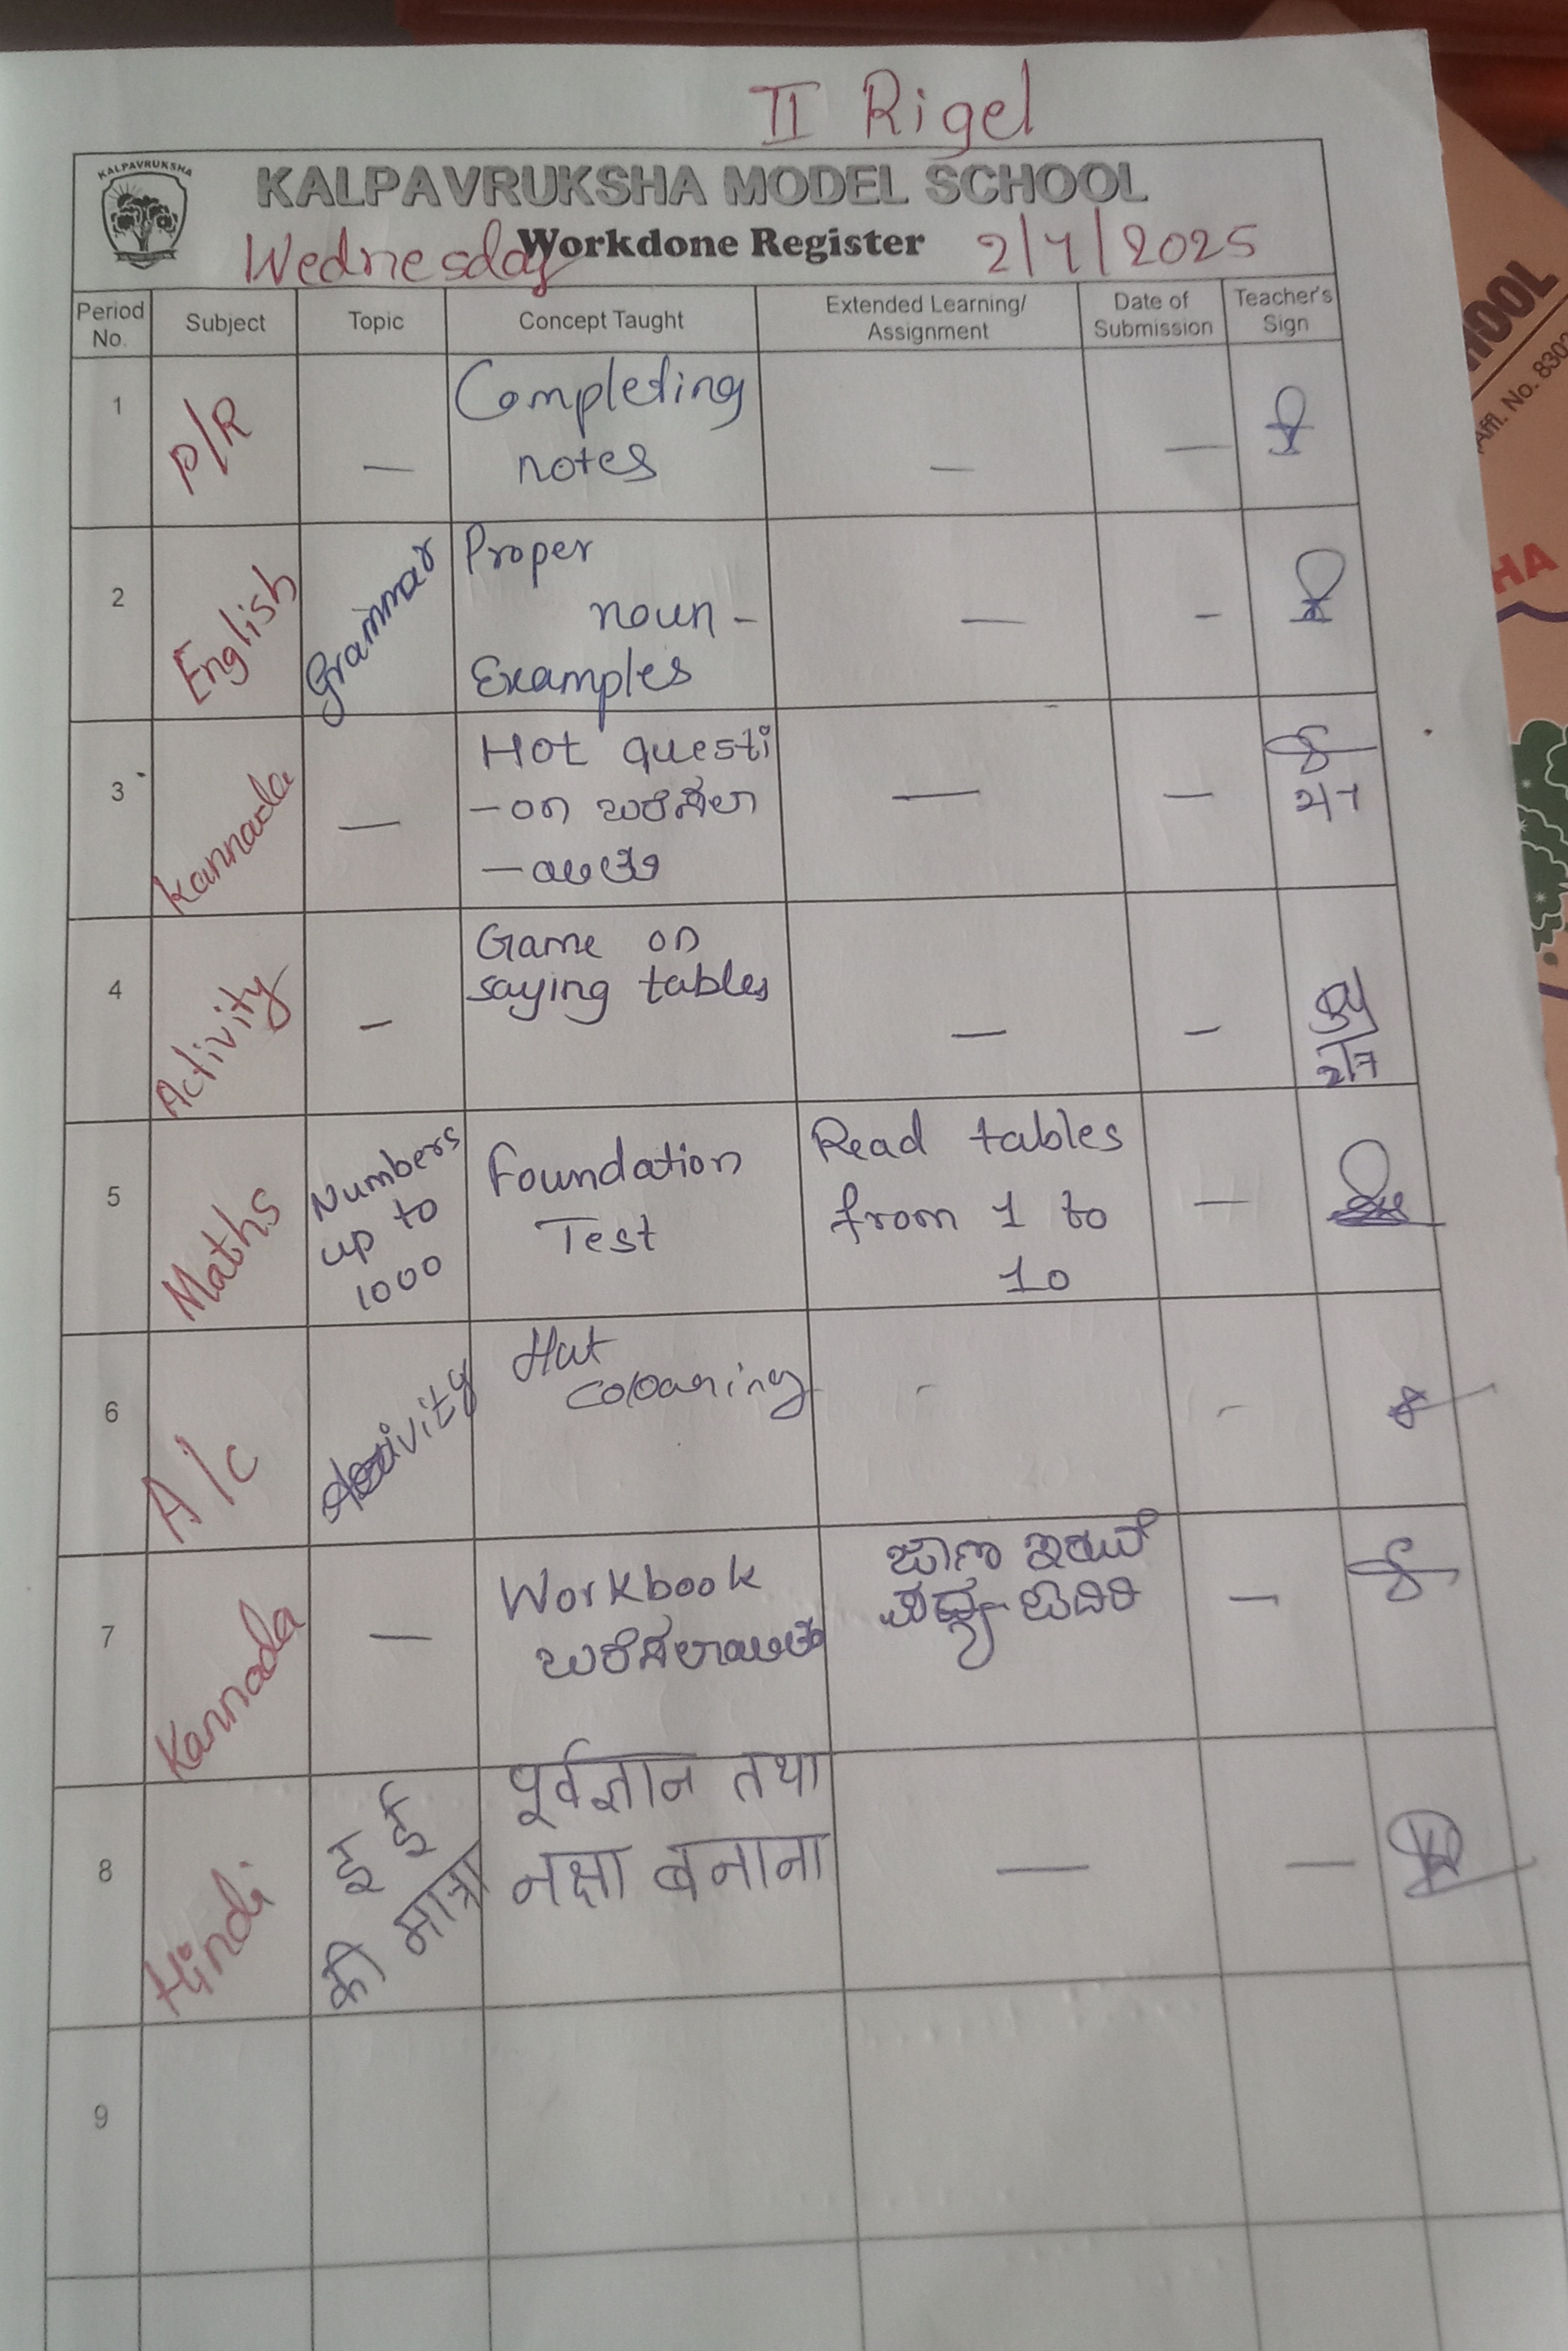 II Rigel
KALPAVRUKSHA
KALPAVRUKSHA MODEL SCHOOL
Wednesday Workdone Register 2/7/2025
Period No. Subject Topic Concept Taught Extended Learning/ Assignment Date of Submission Teacher's Sign
1 P/R — Completing
notes — —
2 English Grammar Proper
noun -
Examples — -
3 Kannada — Hot questi
-on ಬರೆಸಲಾ
-ಯಿತು — —
2/7
4 Activity - Game on
saying tables — -
2/7
5 Maths Numbers
up to
1000
Foundation
Test
Read tables
from 1 to
10
—
6 A/C Activity Hat
colouring - -
7 Kannada — Workbook
ಬರೆಸಲಾಯಿತು
ಜಾಣ ಇರುವೆ
ಪದ್ಯ ಓದಿರಿ
—
8 Hindi इ ई
की मात्रा
पूर्वज्ञान तथा
नक्षा बनाना
— —
9
HOOL
Affl. No. 8303
HA